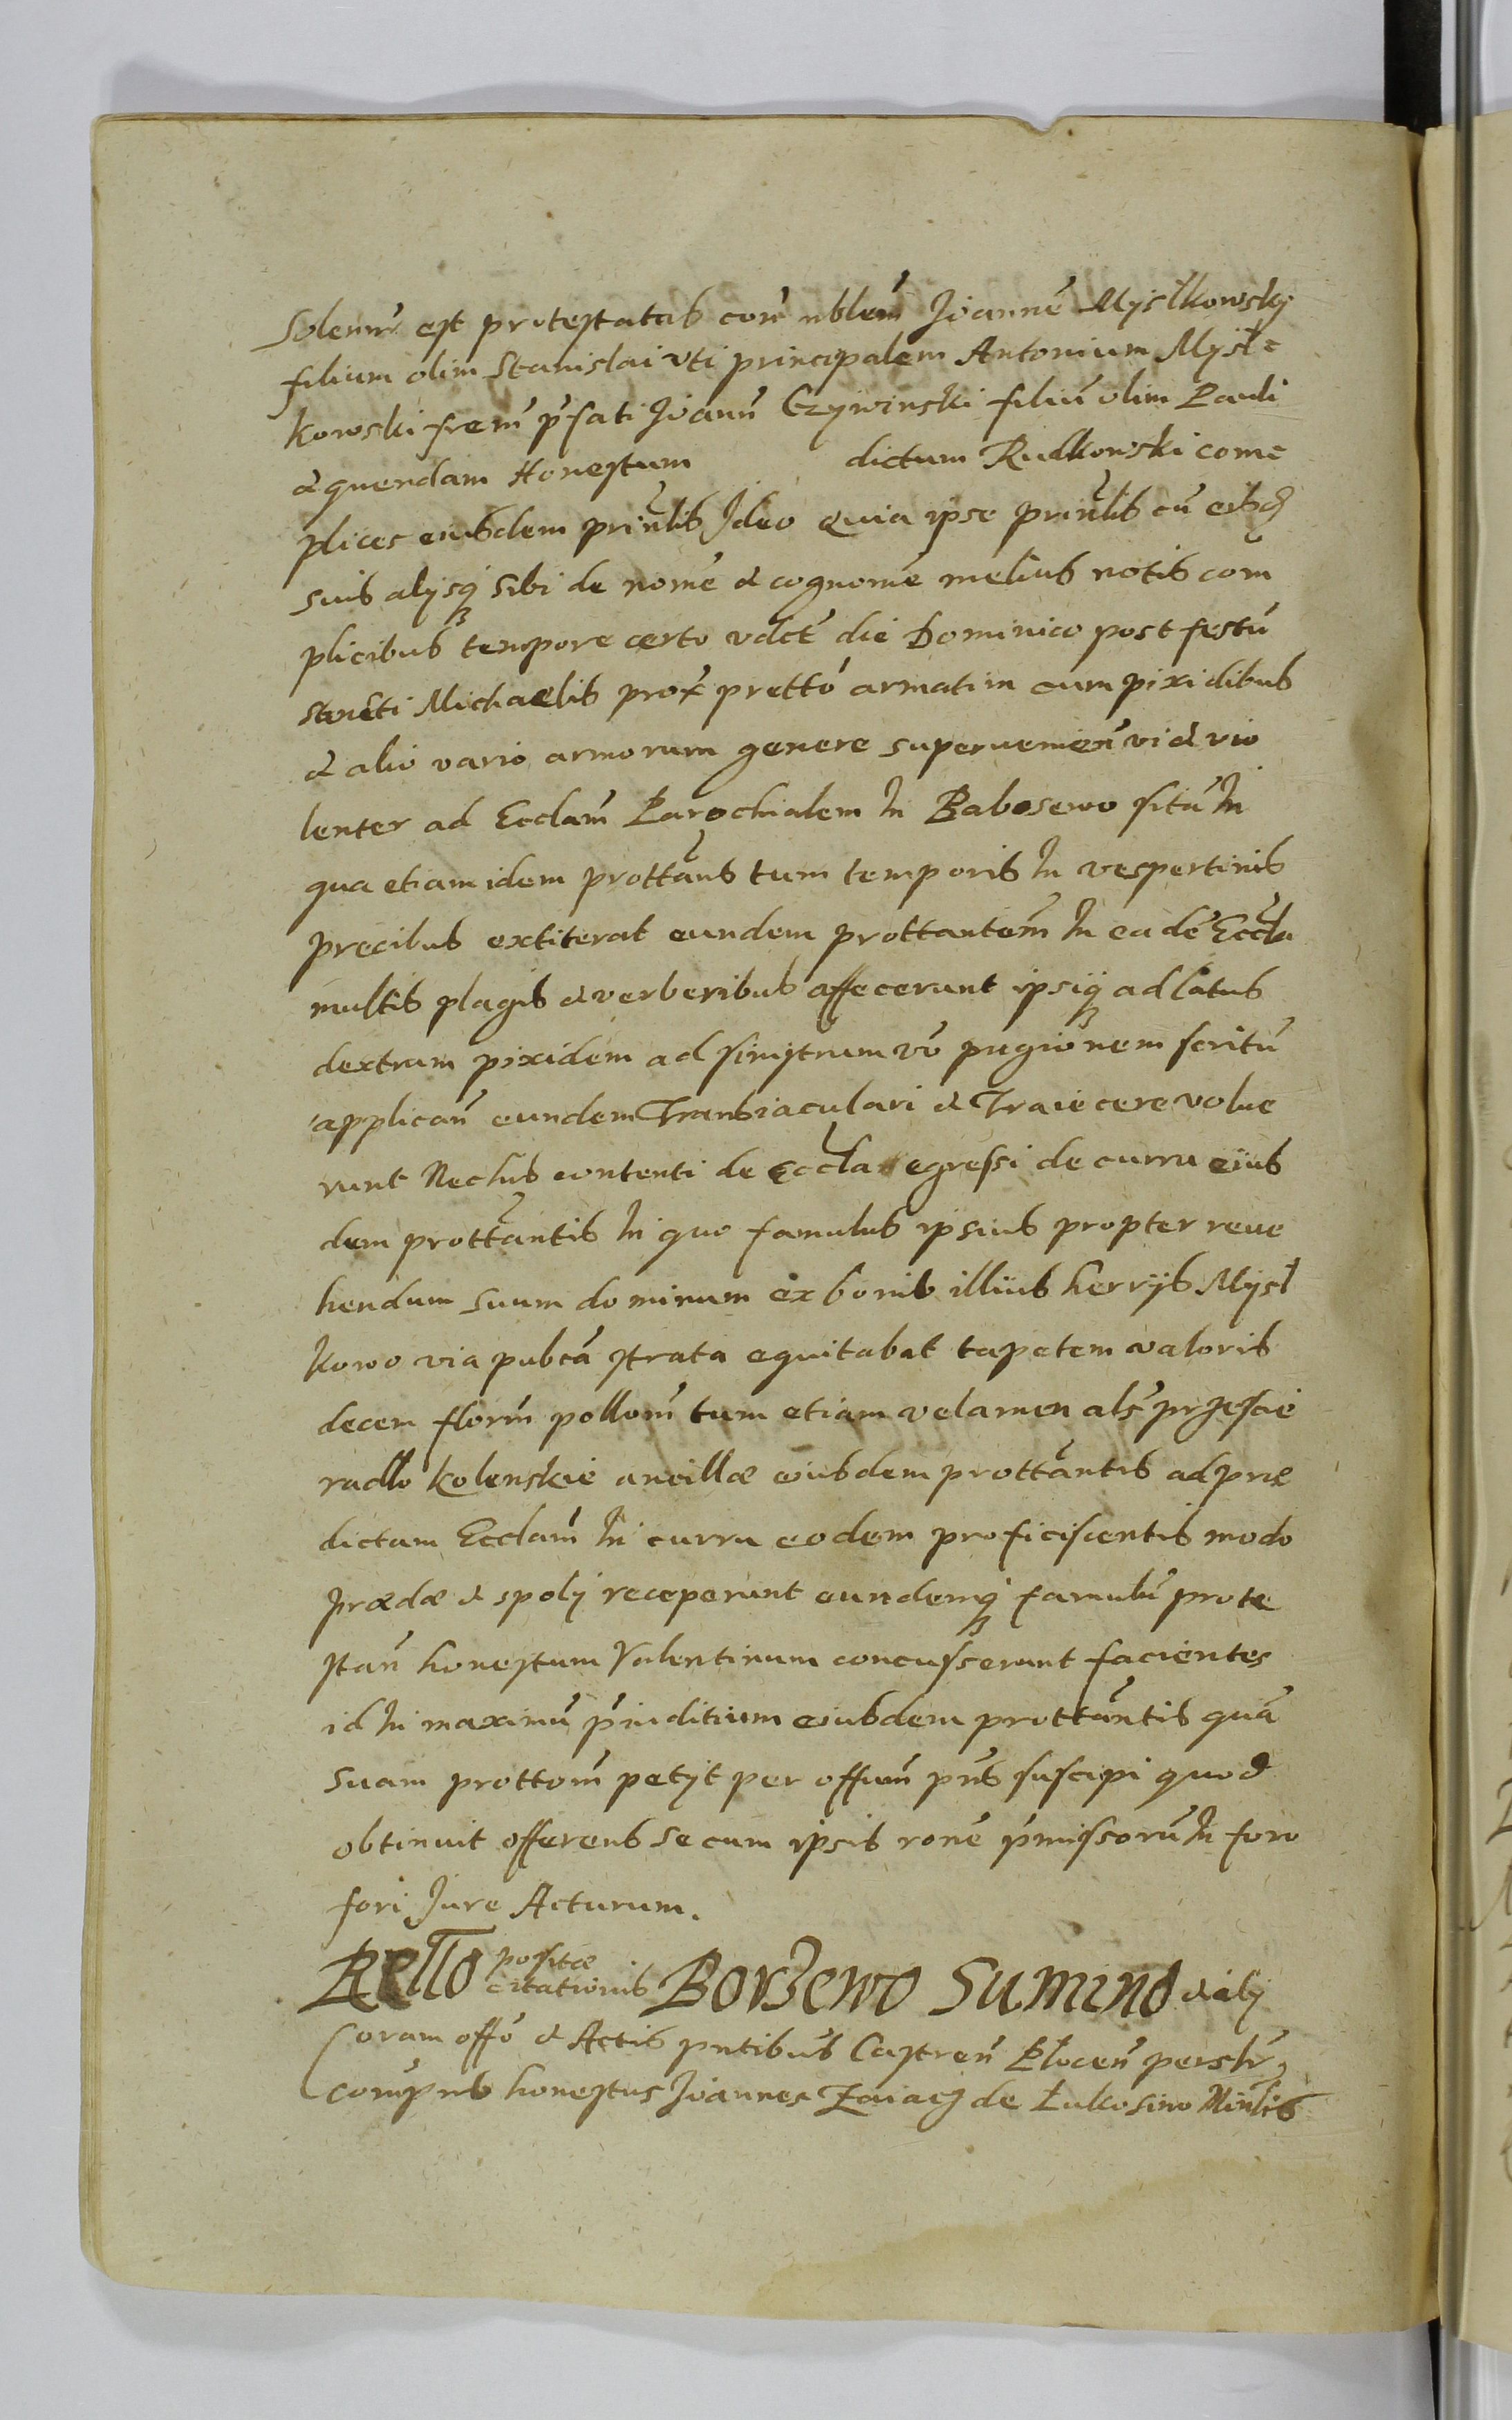 Solennr est protestatus con nblem Joannē Mysłkowskj
filium olim Stanislai vti principalem Antonium Mysł=
kowski frem pfati Joann Czywinski filiū olim Pauli
& quendam Honestum dictum Rudkowski com=
plices eiusdem prinlis Ideo Quia ipse prinlis cū
suis alijsq sibi de nomē & cognomē melius notis com
plicibus tempore certo vdct die Dominico post festū
Sancti Michaelis prox prettō armatim cum pixidibus
& alio vario armorum genere supervenien vi & vio
lenter ad Ecclam Parochialem In Babosewo sitā In
qua etiam idem prottans tum temporis In vespertinis
precibus extiterat eundem prottantem In eadē Eccla
multis plagis & verberibus affecerunt ipsiq ad latus
dextrum pixidem ad sinistrum vō pugionem strictū
applican eundem Transiaculari & Traiecere volue
runt Nec his contenti de Eccla egressi de curru eius
dem prottantis In quo famulus ipsius propter reue
hendum suum dominum ex bonis illius herrijs Mysł
kowo via pubca strata equitabat tapetem valoris
decem florm pollom tum etiam velamen als przescie
radlo kolenskie ancillæ eiusdem prottantis ad præ
dictam Ecclam In curru eodem proficiscentis modo
prædæ & spolij receperunt eundemq famulū prote
stan honestum Valentinum concusserunt facientes
id In maximū piuditium eiusdem prottantis quā
suam prottom petijt per offum pns suscipi quod
obtinuit offerens se cum ipsis ronē pmissorū In foro
fori Jure Acturum.
Rello positæ citationis Borzewo Sumino & alij
Coram offo & Actis pntibus Castren Plocen perslr
compns honestus Joannes Zaiacz de Łukosino Minlis